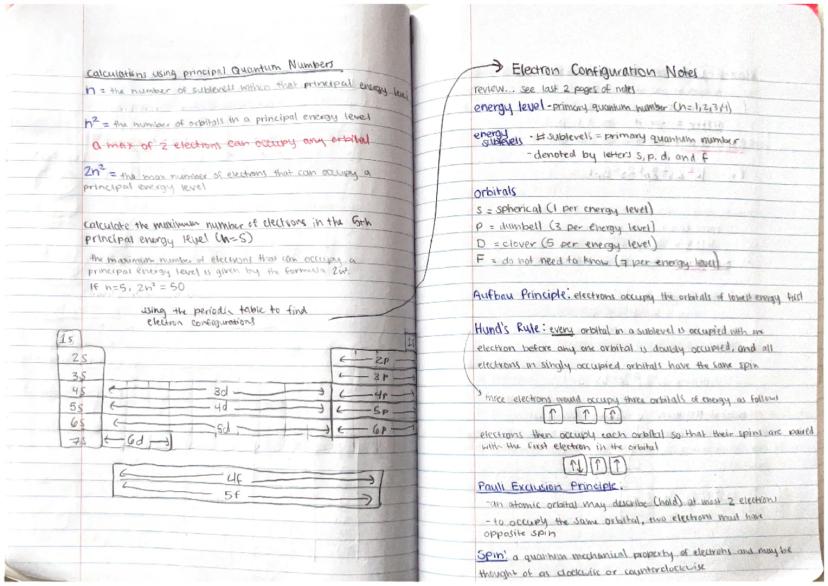 calculations using principal Quantum Numbers
n = the number of sublevels within that principal energy level
n² = the number of orbitals in a principal energy level
a max of 2 electrons can occupy any orbital
2n² = the max number of electrons that can occupy a
principal energy level
calculate the maximum number of electrons in the 5th
principal energy level (n=5)
the maximum number of electrons that can occupy a
principal energy level is given by the formula 2n².
If n=5, 2n² = 50
using the periodic table to find
electron configurations
1s
1s
2s
2p
3s
3p
4s
3d
4p
5s
4d
5p
6s
5d
6p
7s
6d
4f
5f
→ Electron Configuration Notes
review... see last 2 pages of notes
energy level - primary quantum number (n=1,2,3,4)
energy sublevels - # sublevels = primary quantum number
- denoted by letters s, p, d, and f
orbitals
S = spherical (1 per energy level)
P = dumbell (3 per energy level)
D = clover (5 per energy level)
F = do not need to know (7 per energy level)
Aufbau Principle: electrons occupy the orbitals of lowest energy first
Hund's Rule: every orbital in a sublevel is occupied with one
electron before any one orbital is doubly occupied, and all
electrons in singly occupied orbitals have the same spin
three electrons would occupy three orbitals of energy as follow
↑ ↑ ↑
electrons then occupy each orbital so that their spins are paired
with the first electron in the orbital
↑↓ ↑ ↑
Pauli Exclusion Principle:
- an atomic orbital may describe (hold) at most 2 electrons
- to occupy the same orbital, two electrons must have
opposite spin
Spin: a quantum mechanical property of electrons and may be
thought of as clockwise or counterclockwise